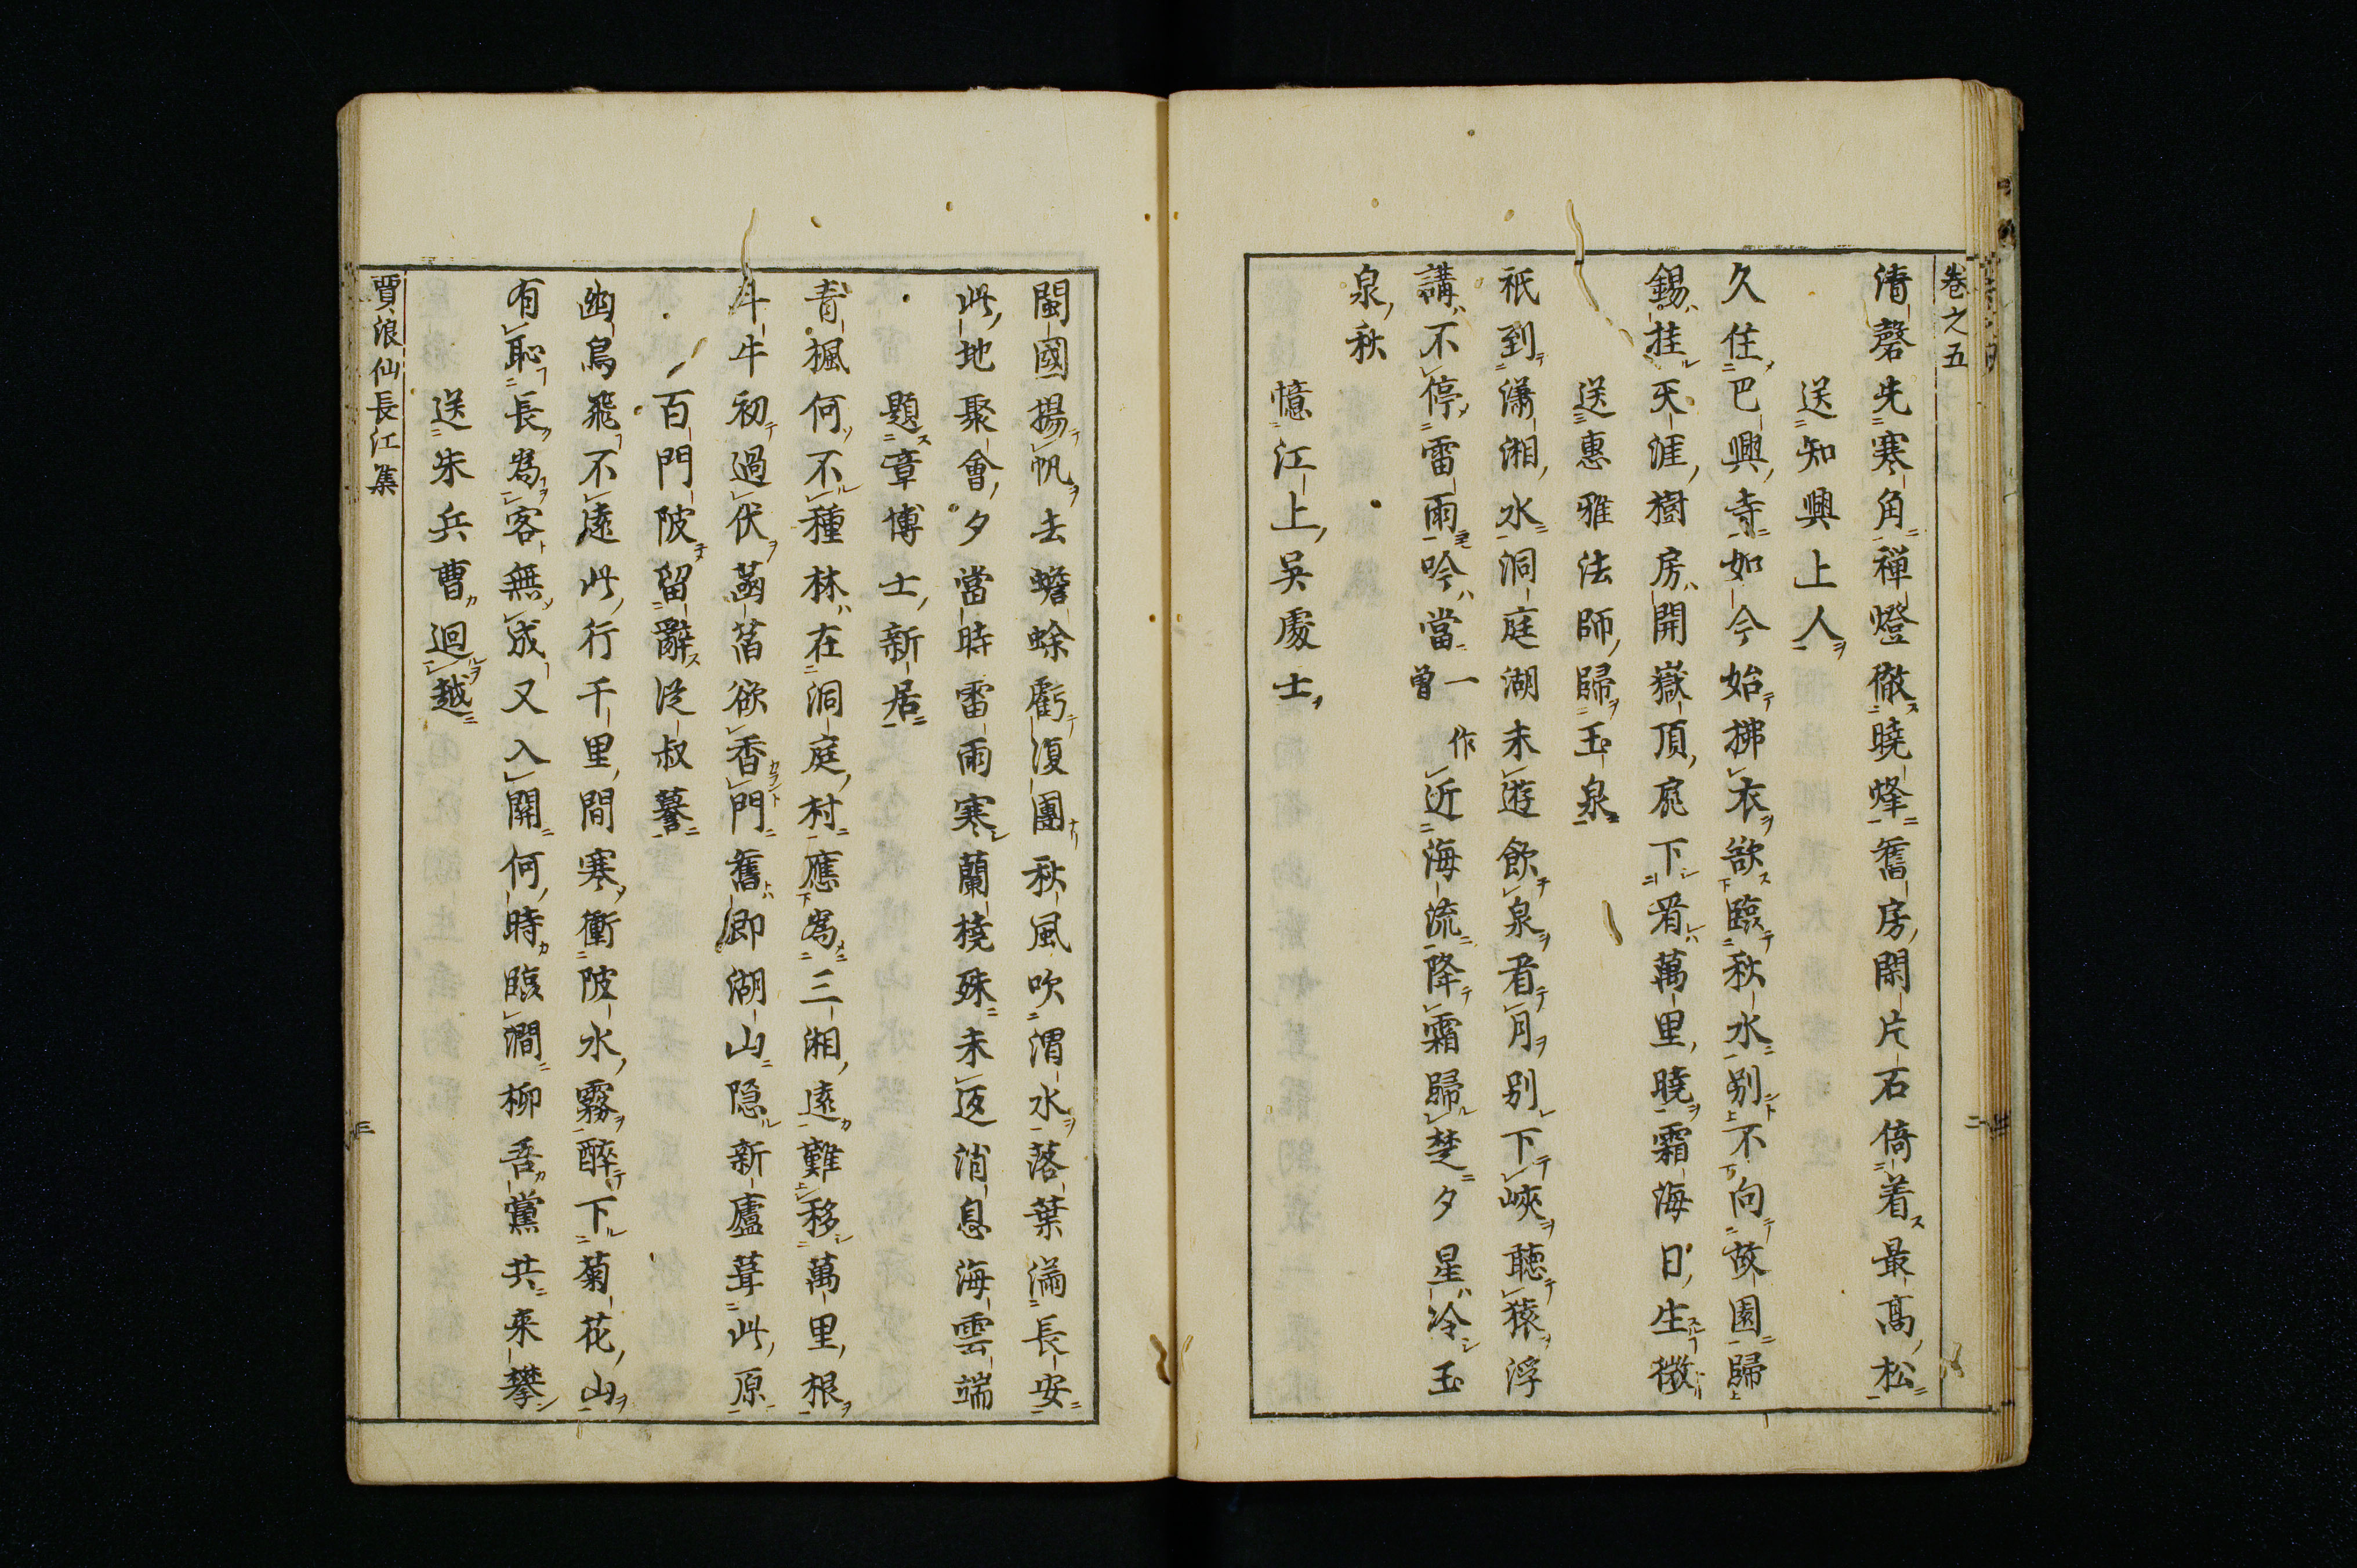 卷之五
清磬先寒角禪燈徹曉烽舊房閑片石倚着最高松
送知興上人
久住巴興寺如今始拂衣欲臨秋水別不向故園歸
錫挂天涯樹房開嶽頂扉下看萬里曉霜海日生微
送惠雅法師歸玉泉
祇到瀟湘水洞庭湖未遊飲泉看月別下峽聽猿浮
講不停雷雨吟當一作曾近海流降霜歸楚夕星冷玉
泉秋
憶江上吳處士
閩國揚帆去蟾蜍虧復團秋風吹渭水落葉滿長安
此地聚會夕當時雷雨寒蘭橈殊未返消息海雲端
題章博士新居
青楓何不種林在洞庭村應為三湘遠難移萬里根
斗牛初過伏菡萏欲香門舊即湖山隠新廬葺此原
百門陂留辭從叔謩
幽鳥飛不遠此行千里間寒衝陂水霧醉下菊花山
有恥長為客無成又入關何時臨澗柳吾黨共来攀
送朱兵曹迴越
賈浪仙長江集
三